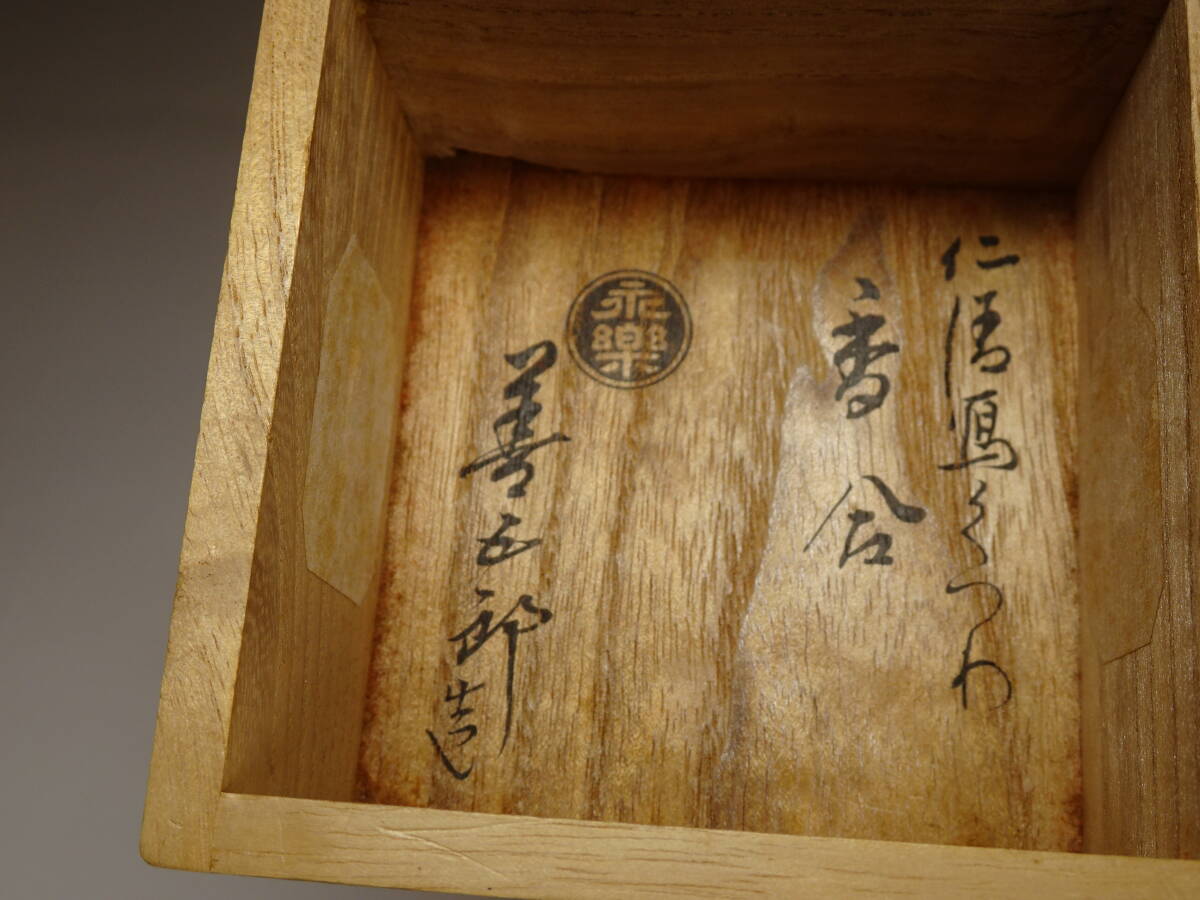 仁清写くつわ
香合
永樂
善五郎造